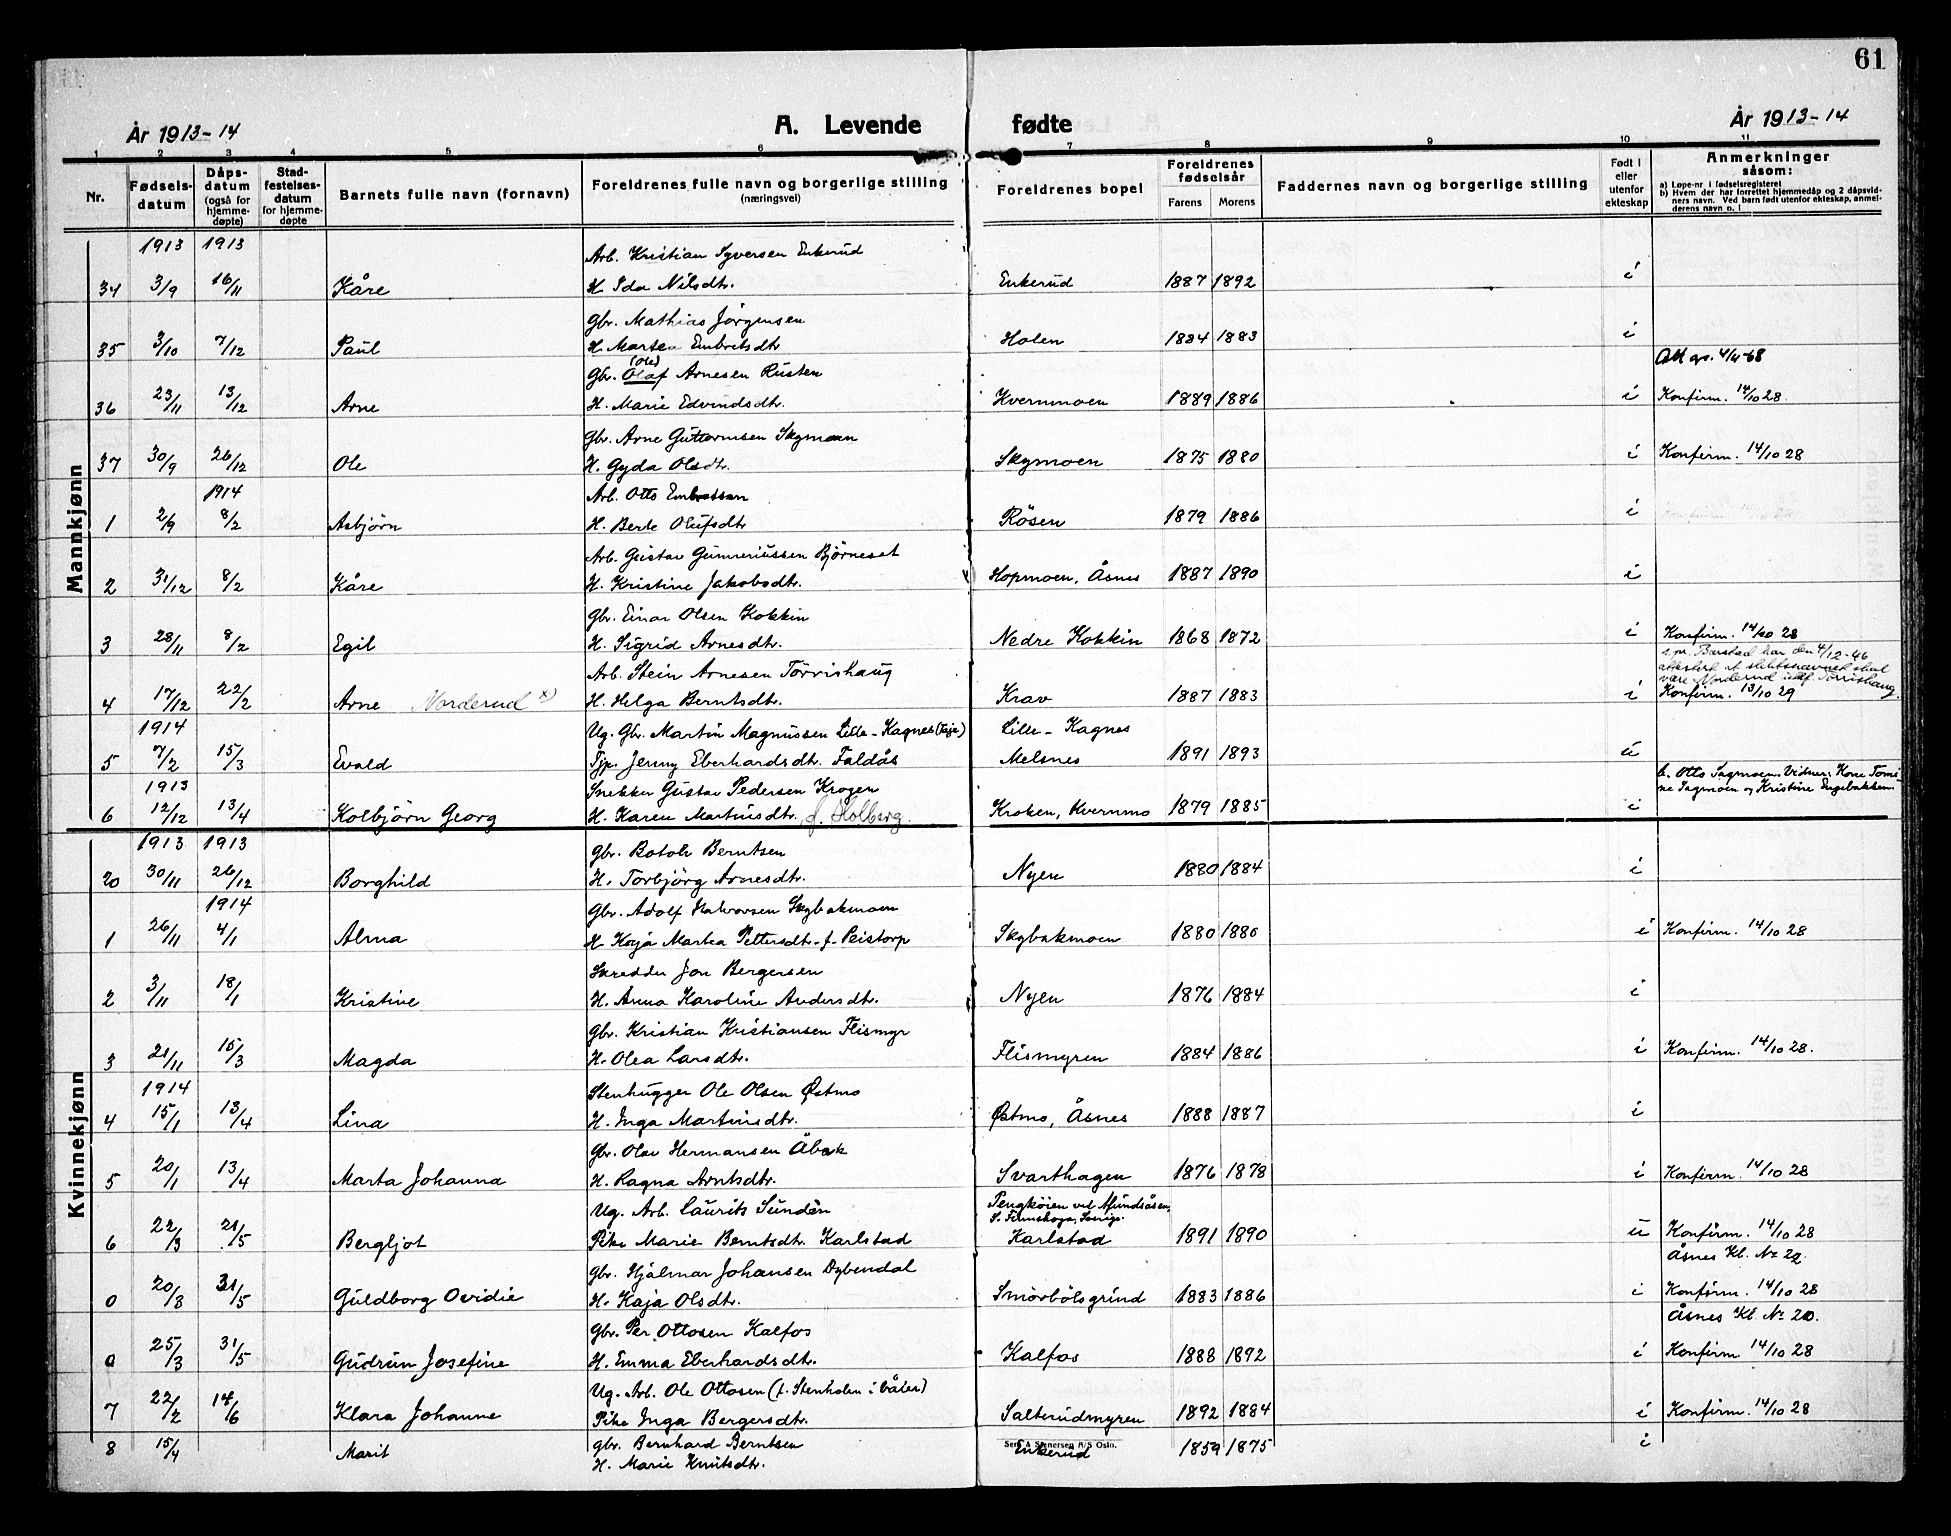 61
År 1913-14 A. Levende fødte År 1913-14
1 2 3 4 5 6 7 8 9 10 11
Nr. Fødselsdatum Dåpsdatum (også for hjemmedøpte) Stadfestelsesdatum for hjemmedøpte Barnets fulle navn (fornavn) Foreldrenes fulle navn og borgerlige stilling (næringsvei) Foreldrenes bopel Foreldrenes fødselsår Farens Morens Faddernes navn og borgerlige stilling Født i eller utenfor ekteskap Anmerkninger såsom:
a) Løpe-nr i fødselsregisteret
b) Hvem der har forrettet hjemmedåp og 2 dåpsvidners navn. Ved barn født utenfor ekteskap, anmelderens navn o. l
Mannkjønn
1913 1913 Arb. Kristian Syversen Enkerud
34 3/9 16/11 Kåre H. Ida Nilsdtr. Enkerud 1887 1892 i
Gbr. Mathias Jörgensen
35 3/10 7/12 Paul H. Martea Embretsdtr Holen 1884 1883 i
(Ole) Att gs. 4/4-68
Gbr. Olaf Arnesen Rusten
36 23/11 13/12 Arne H. Marie Edvindsdtr. Kvernmoen 1889 1886 i Konfirm. 14/10 28.
Gbr. Arne Guttormsen Skymoen
37 30/9 26/12 Ole H. Gyda Olsdtr. Skymoen 1875 1880 i Konfirm. 14/10 28
1914 Arb. Otto Embretsen
1 2/9 8/2 Asbjörn H. Berte Olufsdtr Rösen 1879 1886 i
Arb. Gustav Gunneriussen Björneset
2 31/12 8/2 Kåre H. Kristine Jakobsdtr. Hopmoen, Åsnes 1887 1890 i
Gbr. Einar Olsen Kokkin
3 28/11 8/2 Egil H. Sigrid Arnesdtr. Nedre Kokkin 1868 1872 i Konfirm. 14/10 28
Arb. Stein Arnesen Törrishaug s.pr. Barstad har den 4/12-46
attestert at slektsnavnet skal
være Norderud istf. Törrishaug
4 17/12 22/2 Arne Norderud x) H. Helga Berntsdtr. Krav 1887 1883 i Konfirm. 13/10 29
1914 Ug. Gbr. Martin Magnussen Lille-Kagnes (Teje) Lille-Kagnes
5 7/2 15/3 Evald Tjp. Jenny Eberhardsdtr. Faldås Melsnes 1891 1893 u
1913 Snekker Gustav Pedersen Krogen b. Otto Sagmoen. Vidner: Kone Tomine Sagmoen og Kristine Engebakken
6 12/12 13/4 Kolbjörn Georg H. Karen Martinsdtr. f. Holberg. Kroken, Kvernmo 1879 1885 i
Kvinnekjønn
1913 1913 Gbr. Botolv Berntsen
20 30/11 26/12 Borghild H. Torbjörg Arnesdtr. Nyen 1880 1884 i
1914 Gbr. Adolf Halvorsen Skybakmoen
1 26/11 4/1 Alma H. Kaja Martea Pettersdtr. f. Peistorp Skybakmoen 1880 1886 i Konfirm. 14/10 28
Skredder Jon Bergersen
2 3/11 18/1 Kristine H. Anna Karoline Andersdtr. Nyen 1876 1884 i
Gbr. Kristian Kristiansen Flismyr
3 21/11 15/3 Magda H. Olea Larsdtr. Flismyren 1884 1886 i Konfirm. 14/10 28.
1914 Stenhugger Ole Olsen Østmo
4 15/1 13/4 Lina H. Inga Martinsdtr. Østmo, Åsnes 1888 1887 i
Gbr. Olav Hermansen Åbak
5 20/1 13/4 Marta Johanna H. Ragna Arntsdtr. Svarthagen 1876 1878 i Konfirm. 14/10 28
Ug. Arb. Laurits Sundén Pengköien ved Afundsåsen,
6 22/3 21/5 Bergljot Pike Marie Berntsdtr. Karlstad Karlstad 1891 1890 u Konfirm. 14/10 28
Gbr. Hjalmar Johansen Dybendal Åsnes Kl. № 22.
0 20/3 31/5 Guldborg Ovidie H. Kaja Olsdtr. Smörbölsgrind 1883 1886 i Konfirm. 14/10 28
Gbr. Per Ottosen Kalfos Åsnes Kl № 20.
0 25/3 31/5 Gudrun Josefine H. Emma Eberhardsdtr. Kalfos 1888 1892 i Konfirm 14/10 28
Ug. Arb. Ole Ottosen (f. Stenholen i Våler)
7 22/2 14/6 Klara Johanne Pike Inga Bergersdtr. Salterudmyren 1892 1884 i Konfirm. 14/10 28
8 15/4 Marit Gbr. Bernhard Berntsen Enkerud 1859 1875 i
H. Marie Knutsdtr.